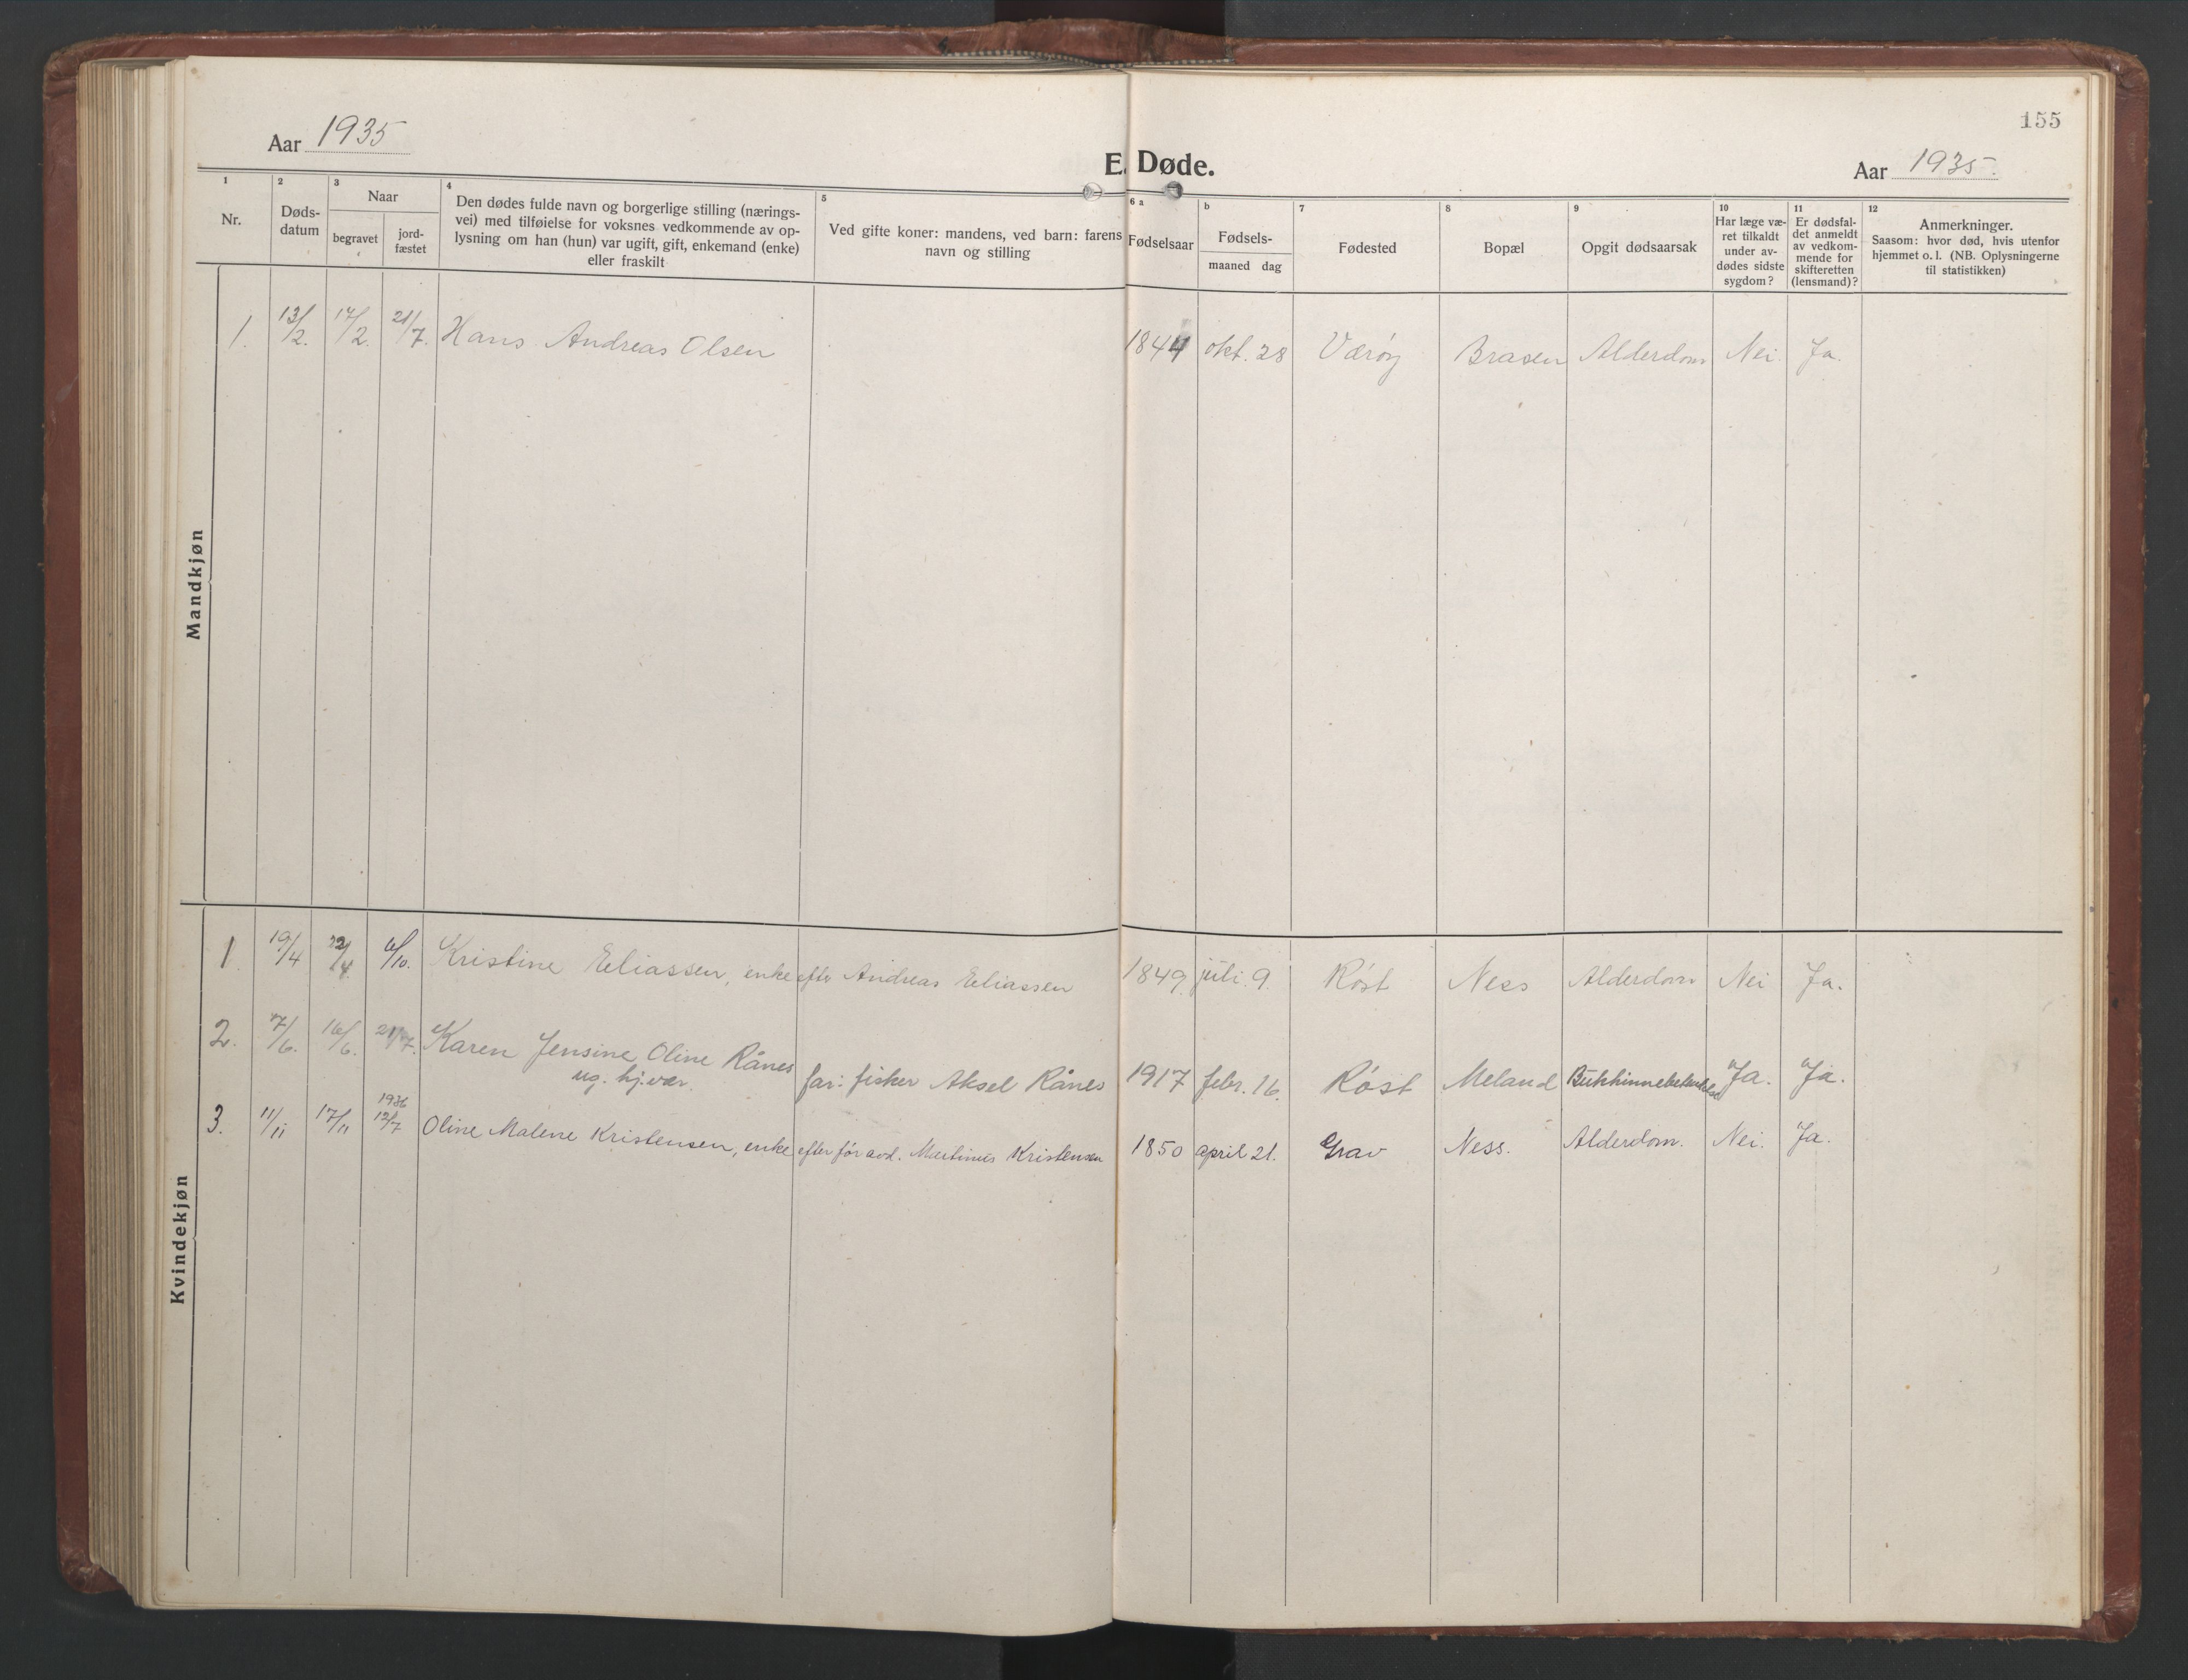 155
Aar 1935
E. Døde.
Aar 1935.
1 2 3 4 5 6 a b 7 8 9 10 11 12
Nr.
Døds-
datum
Naar
begravet
jord-
fæstet
Den dødes fulde navn og borgerlige stilling (nærings-
vei) med tilføielse for voksnes vedkommende av op-
lysning om han (hun) var ugift, gift, enkemand (enke)
eller fraskilt
Ved gifte koner: mandens, ved barn: farens
navn og stilling
Fødselsaar
Fødsels-
maaned dag
Fødested
Bopæl
Opgit dødsaarsak
Har læge væ-
ret tilkaldt
under av-
dødes sidste
sygdom?
Er dødsfal-
det anmeldt
av vedkom-
mende for
skifteretten
(lensmand)?
Anmerkninger.
Saasom: hvor død, hvis utenfor
hjemmet o. l. (NB. Oplysningerne
til statistikken)
Mandkjøn
1. 13/2. 17/2. 21/7. Hans Andreas Olsen 1844 okt. 28 Værøy Brasen Alderdom Nei. Ja.
Kvindekjøn
1. 19/4 22/4 6/10. Kristine Eliassen, enke efter Andreas Eliassen 1849. juli 9. Røst Ness Alderdom Nei Ja.
2. 7/6. 16/6. 21/7. Karen Jensine Oline Rånes far: fisker Aksel Rånes 1917 febr. 16. Røst Meland Bukhinnebetendelse Ja. Ja.
ug. hj.vær.
1936
3. 11/11 17/11 12/7 Oline Malene Kristensen, enke efter før avd. Martinus Kristensen 1850 april 21. Grav Ness. Alderdom. Nei. Ja.